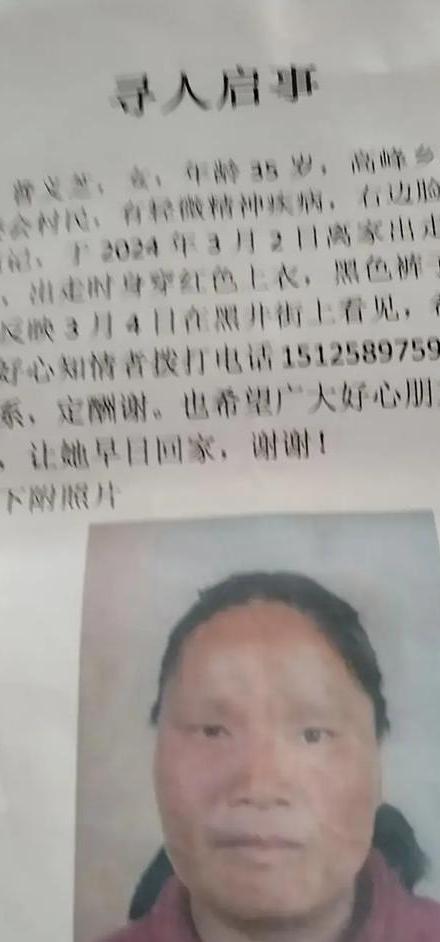 寻人启事
女，年龄 35 岁，高峰乡
会村民，有轻微精神疾病，右边脸
记，于 2024 年 3 月 2 日离家出走
，出走时身穿红色上衣，黑色裤
反映 3 月 4 日在黑井街上看见，
好心知情者拨打电话 1512589759
系，定酬谢。也希望广大好心朋
，让她早日回家，谢谢！
下附照片